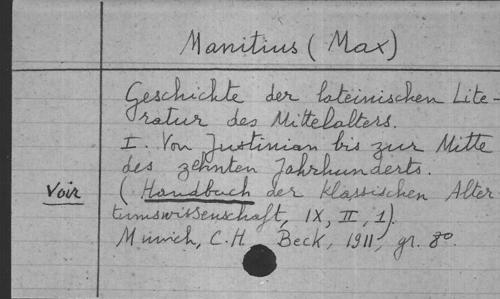 Manitius (Max)
Geschichte der lateinischen Lite-
ratur des Mittelalters.
I. Von Justinian bis zur Mitte
des zehnten Jahrhunderts.
Voir (Handbuch der klassischen Alter
tumswissenschaft, IX, II, 1).
Munich, C.H Beck, 1911, gr. 8o.